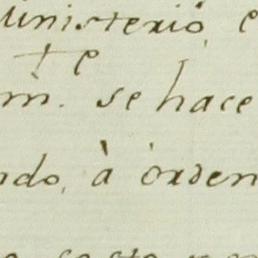 Ministerio, e
te
m. se hace
ndo, à orden